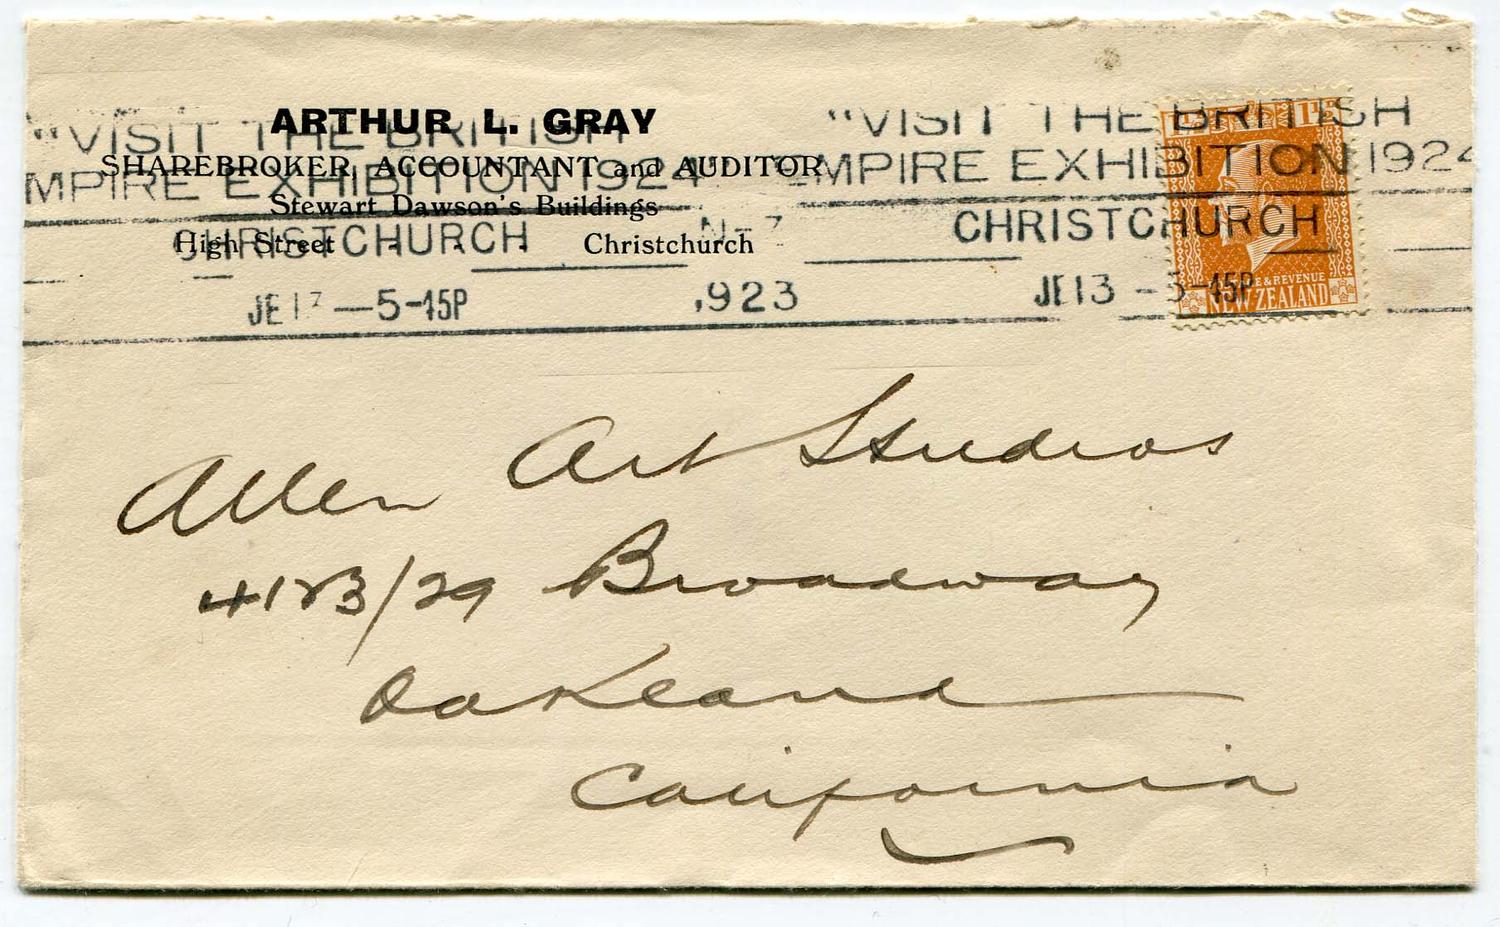 ARTHUR L. GRAY
SHAREBROKER, ACCOUNTANT and AUDITOR
Stewart Dawson's Buildings
High Street - - - Christchurch
"VISIT THE BRITISH "VISIT THE BRITISH
MPIRE EXHIBITION 1924" EMPIRE EXHIBITION 1924
CHRISTCHURCH N-Z CHRISTCHURCH
JE 13 —5-45P 1923 JE 13 —5-45P
& REVENUE
NEW ZEALAND
Allen Art Studios
4123/29 Broadway
Oakland
California